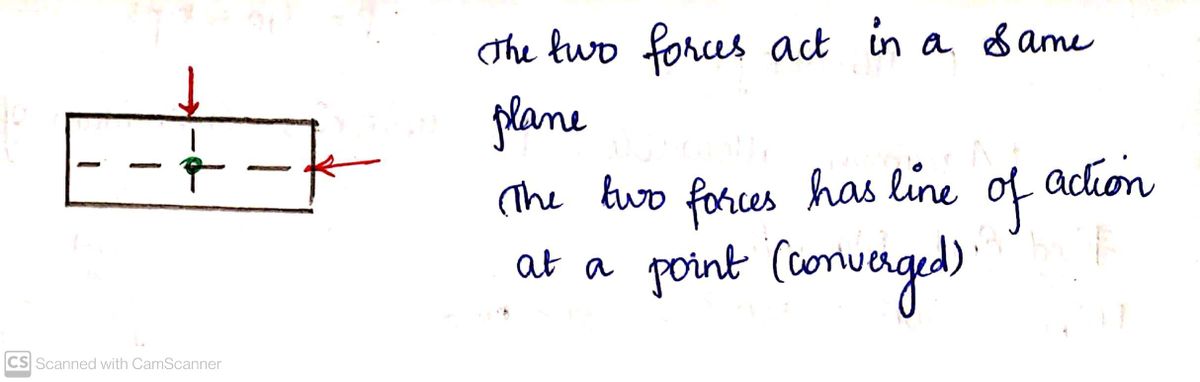 The two forces act in a same
plane
The two forces has line of action
at a point (converged)
CS Scanned with CamScanner